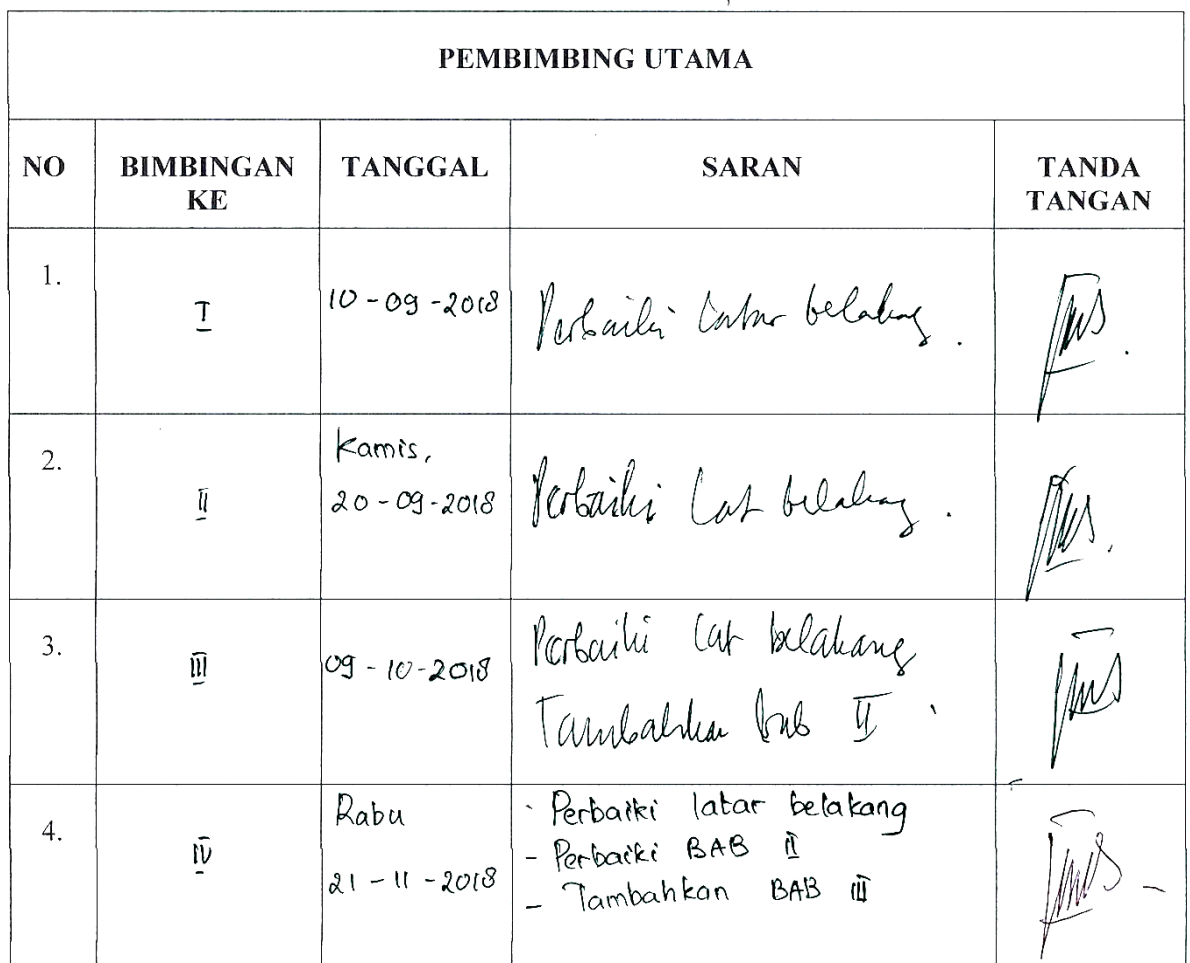 PEMBIMBING UTAMA
NO BIMBINGAN KE TANGGAL SARAN TANDA TANGAN
1. I 10-09-2018 Perbaiki latar belakang.
2. II Kamis, 20-09-2018 Perbaiki lat belakang.
3. III 09-10-2018 Perbaiki lat belakang
Tambahkan bab II
4. IV Rabu 21-11-2018 - Perbaiki latar belakang
- Perbaiki BAB II
- Tambahkan BAB III